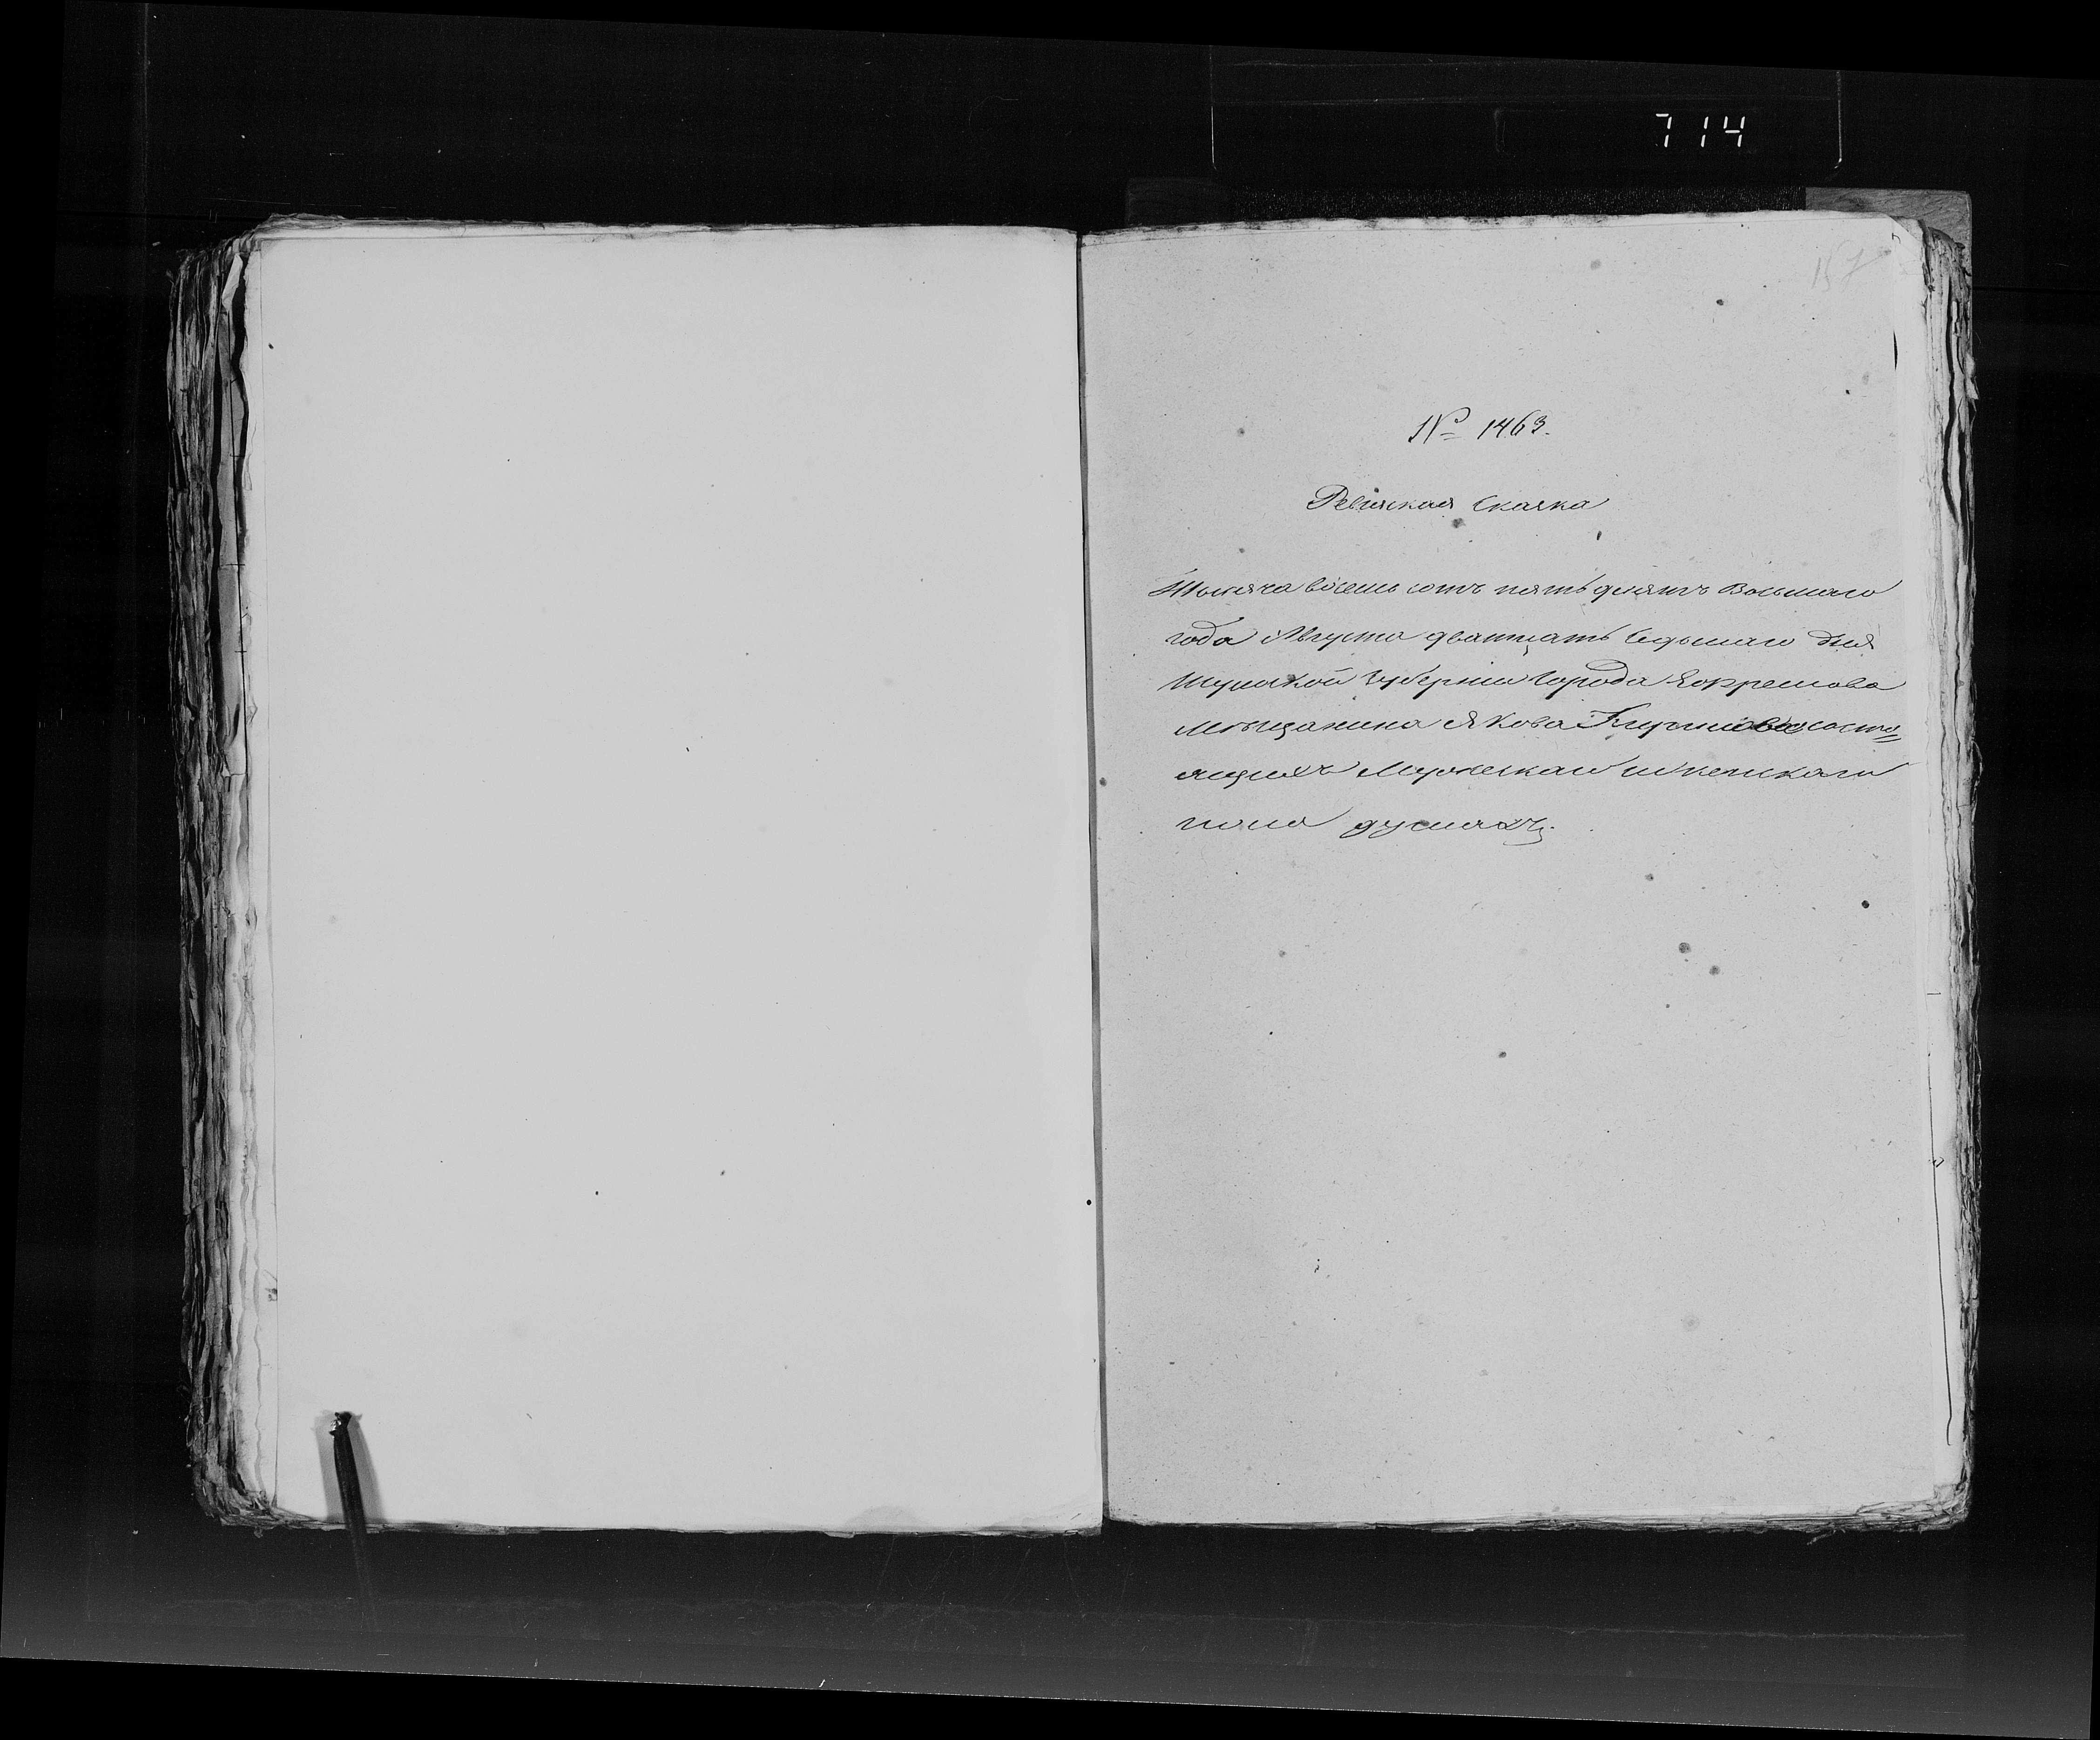 714
157
№ 1463.
Ревизская Сказка
Тысяча восемь сотъ пятьдесятъ Восьмаго
года Августа двантцать Седьмаго дня
Тульской Губернии Города Ефремова
Мещанина Якова состо=
ящихъ Мужескаго и женскаго
пола душахъ.